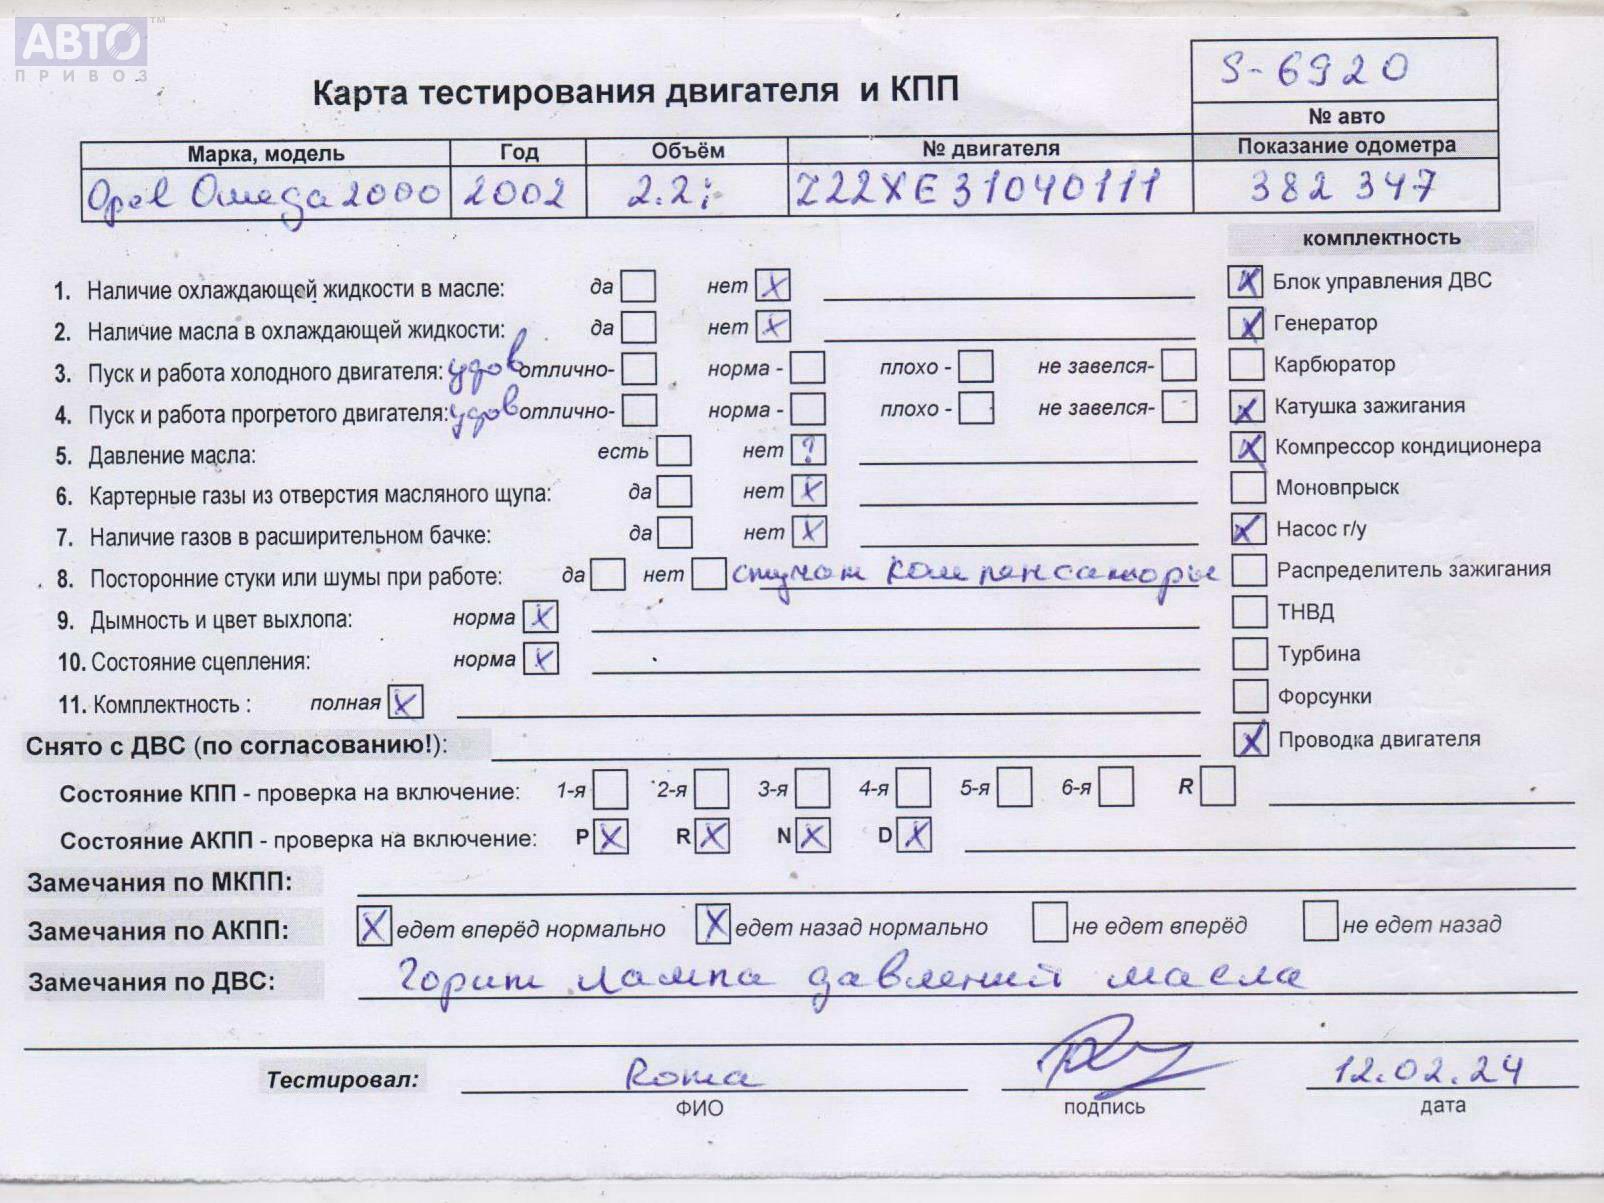 АВТО™
ПРИВОЗ
Карта тестирования двигателя и КПП
S-6920
№ авто
Марка, модель Год Объём № двигателя Показание одометра
Opel Омеga 2000 2002 2.2i Z22XE31040111 382 347
комплектность
1. Наличие охлаждающей жидкости в масле: да нет X
Блок управления ДВС X
2. Наличие масла в охлаждающей жидкости: да нет X
Генератор X
3. Пуск и работа холодного двигателя: удов отлично- норма - плохо - не завелся-
Карбюратор
4. Пуск и работа прогретого двигателя: удов отлично- норма - плохо - не завелся-
Катушка зажигания X
5. Давление масла: есть нет ?
Компрессор кондиционера X
6. Картерные газы из отверстия масляного щупа: да нет X
Моновпрыск
7. Наличие газов в расширительном бачке: да нет X
Насос г/у X
8. Посторонние стуки или шумы при работе: да нет стучат компенсаторы
Распределитель зажигания
9. Дымность и цвет выхлопа: норма X
ТНВД
10. Состояние сцепления: норма X
Турбина
11. Комплектность : полная X
Форсунки
Снято с ДВС (по согласованию!):
Проводка двигателя X
Состояние КПП - проверка на включение: 1-я 2-я 3-я 4-я 5-я 6-я R
Состояние АКПП - проверка на включение: P X R X N X D X
Замечания по МКПП:
Замечания по АКПП: X едет вперёд нормально X едет назад нормально не едет вперёд не едет назад
Замечания по ДВС: Горит лампа давлений масла
Тестировал: Рома 12.02.24
ФИО подпись дата